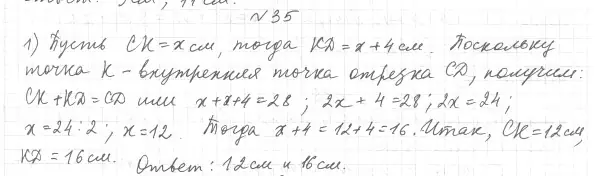 Ответ: 7см, 11см.
№35
1) Пусть CK = x см, тогда KD = x + 4 см. Поскольку
точка K - внутренняя точка отрезка CD, получим:
CK + KD = CD или x + x + 4 = 28 ; 2x + 4 = 28 ; 2x = 24 ;
x = 24 : 2 ; x = 12. Тогда x + 4 = 12 + 4 = 16. Итак, CK = 12 см,
KD = 16 см. Ответ : 12 см и 16 см.